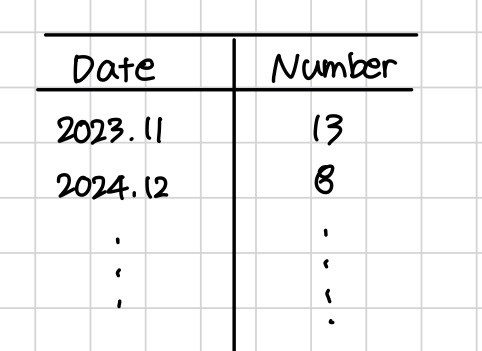 Date Number
2023.11 13
2024.12 8